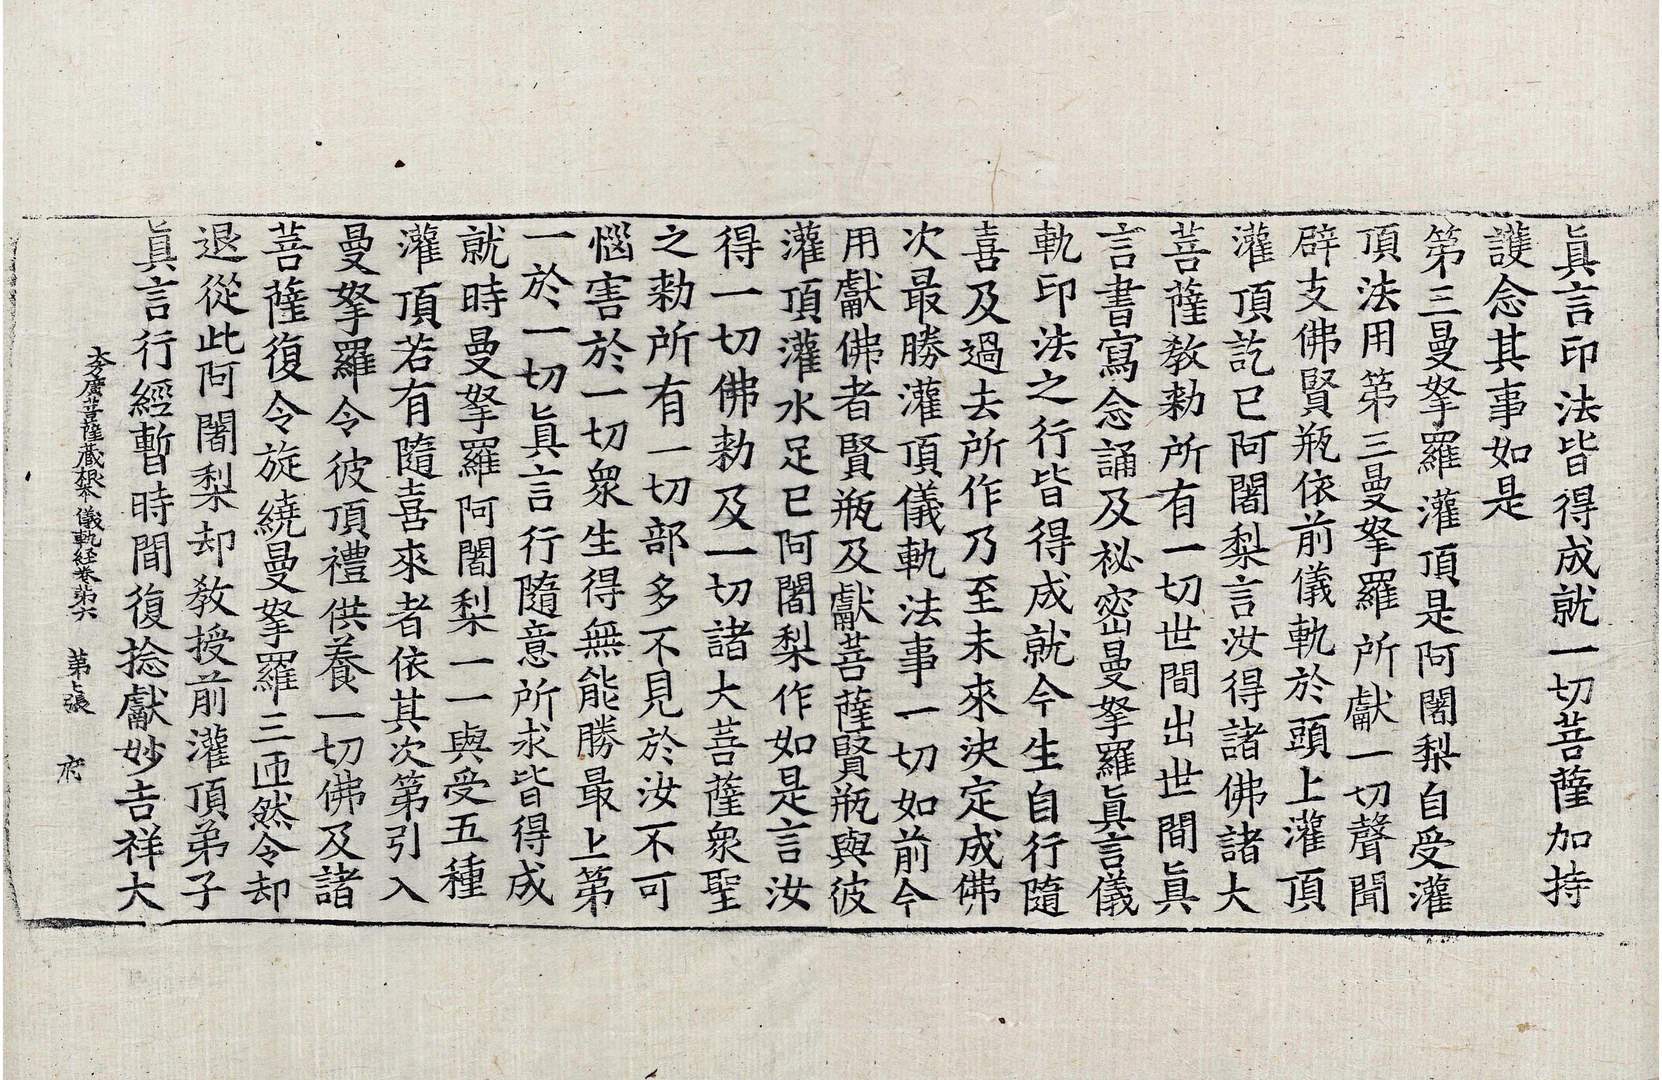 眞言印法皆得成就一切菩薩加持
護念其事如是
第三曼拏羅灌頂是阿闍梨自受灌
頂法用第三曼拏羅所獻一切聲聞
辟支佛賢瓶依前儀軌於頭上灌頂
灌頂訖已阿闍梨言汝得諸佛諸大
菩薩教勑所有一切世間出世間眞
言書寫念誦及祕密曼拏羅眞言儀
軌印法之行皆得成就今生自行隨
喜及過去所作乃至未來決定成佛
次最勝灌頂儀軌法事一切如前今
用獻佛者賢瓶及獻菩薩賢瓶與彼
灌頂灌水足已阿闍梨作如是言汝
得一切佛勑及一切諸大菩薩衆聖
之勑所有一切部多不見於汝不可
惱害於一切衆生得無能勝最上第
一於一切眞言行隨意所求皆得成
就時曼拏羅阿闍梨一一與受五種
灌頂若有隨喜來者依其次第引入
曼拏羅令彼頂禮供養一切佛及諸
菩薩復令旋繞曼拏羅三匝然令却
退從此阿闍梨却教授前灌頂弟子
眞言行經暫時間復捻獻妙吉祥大
大方廣菩薩藏根本儀軌經卷第六 第七張 府